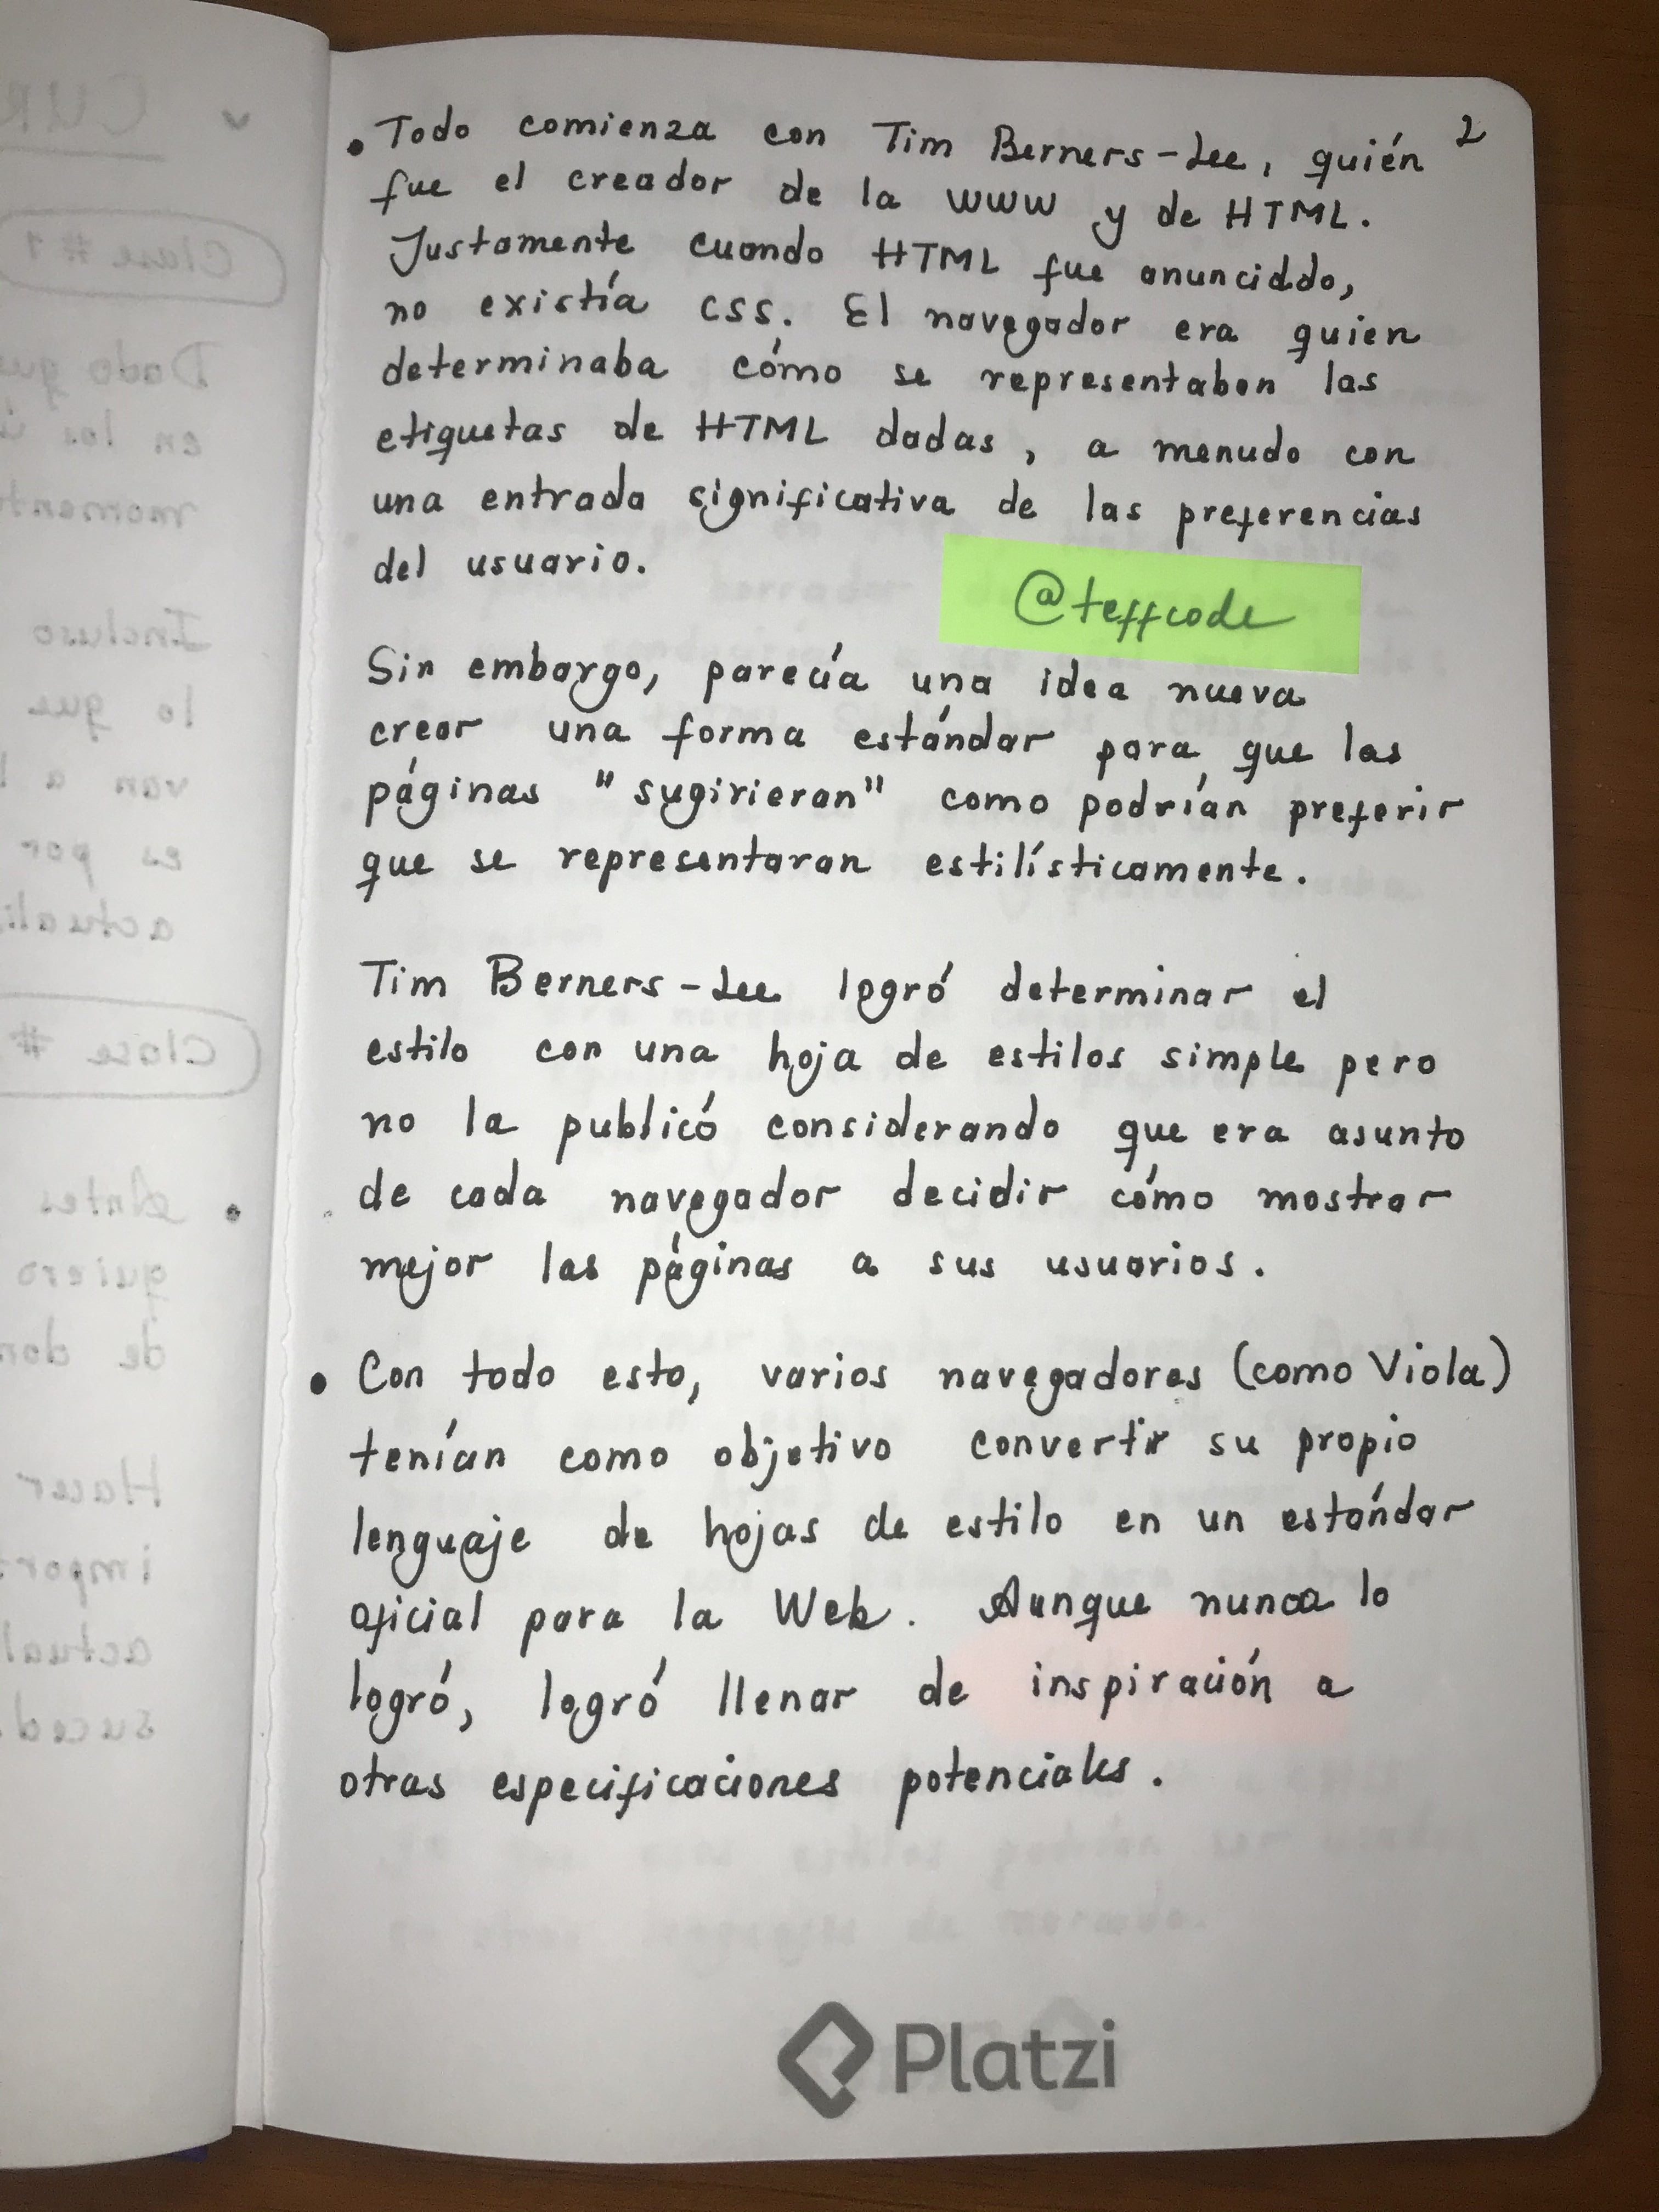 2
• Todo comienza con Tim Berners-Lee, quién
fue el creador de la WWW y de HTML.
Justamente cuando HTML fue anunciddo,
no existía CSS. El navegador era quien
determinaba cómo se representaban las
etiquetas de HTML dadas, a menudo con
una entrada significativa de las preferencias
del usuario.
@teffcode
Sin embargo, parecía una idea nueva
crear una forma estándar para que las
páginas "sugirieran" como podrían preferir
que se representaran estilísticamente.
Tim Berners-Lee logró determinar el
estilo con una hoja de estilos simple pero
no la publicó considerando que era asunto
de cada navegador decidir cómo mostrar
mejor las páginas a sus usuarios.
• Con todo esto, varios navegadores (como Viola)
tenían como objetivo convertir su propio
lenguaje de hojas de estilo en un estándar
oficial para la Web. Aunque nunca lo
logró, logró llenar de inspiración a
otras especificaciones potenciales.
Platzi